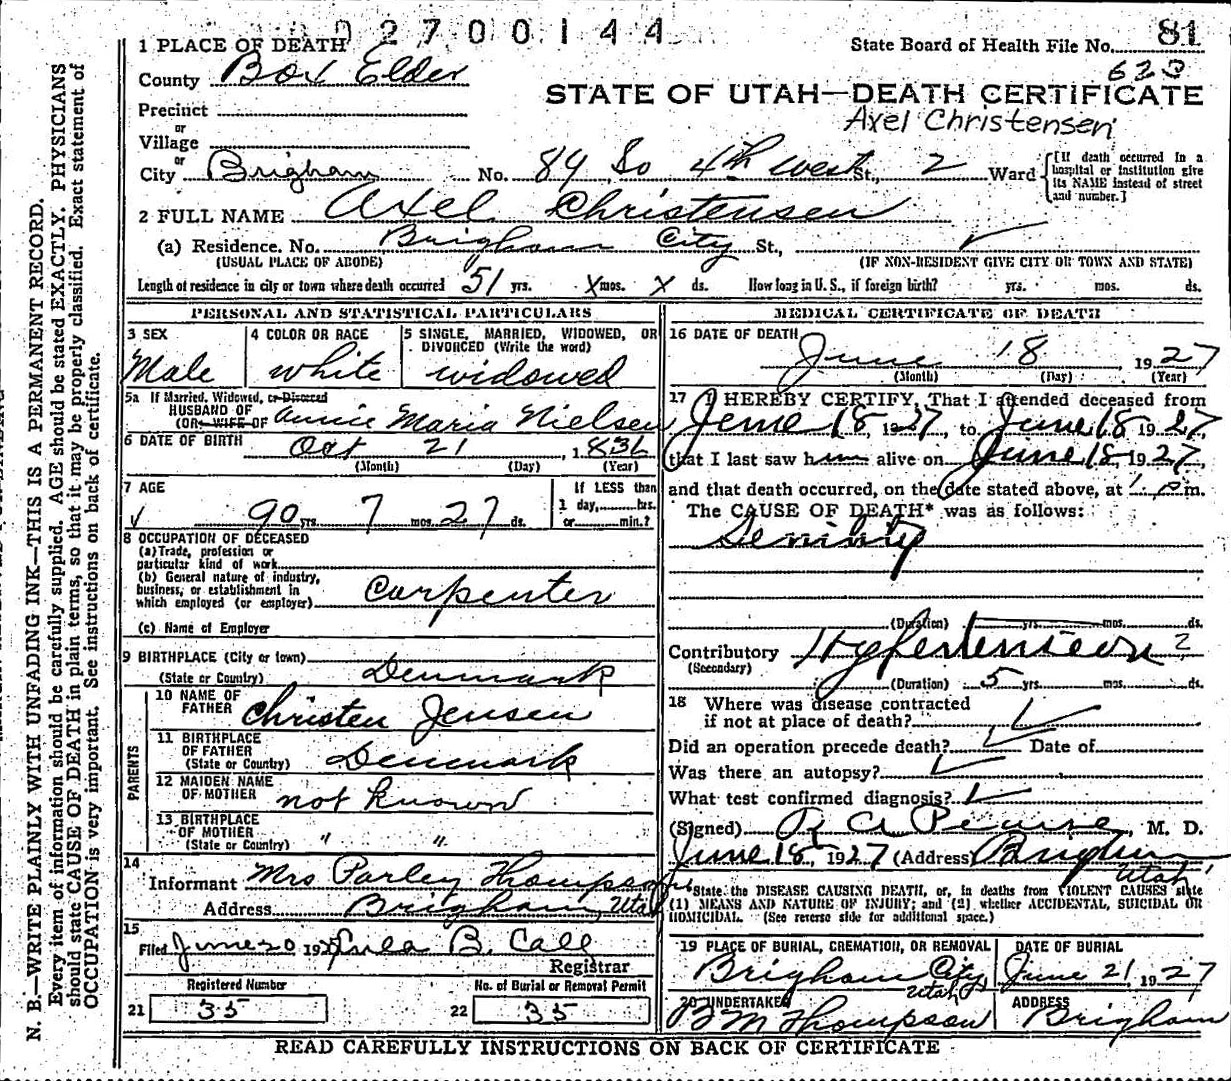 02700144 81
1 PLACE OF DEATH State Board of Health File No.
County Box Elder 620
STATE OF UTAH—DEATH CERTIFICATE
Precinct Axel Christensen
or
Village
or
City Brigham No. 84 So 4th West St., 2 Ward [If death occurred in a hospital or institution give its NAME instead of street and number.]
2 FULL NAME Axel Christensen
(a) Residence. No. Brigham City St.,
(USUAL PLACE OF ABODE) (IF NON-RESIDENT GIVE CITY OR TOWN AND STATE)
Length of residence in city or town where death occurred 51 yrs. x mos. x ds. How long in U. S., if foreign birth? yrs. mos. ds.
PERSONAL AND STATISTICAL PARTICULARS
3 SEX 4 COLOR OR RACE 5 SINGLE, MARRIED, WIDOWED, OR
DIVORCED (Write the word)
Male white widowed
5a If Married, Widowed, or Divorced
HUSBAND OF
(OR WIFE OF Annie Maria Nielsen
6 DATE OF BIRTH Oct 21, 1836
(Month) (Day) (Year)
7 AGE If LESS than
1 day, hrs.
90 yrs. 7 mos. 27 ds. or min.?
8 OCCUPATION OF DECEASED
(a) Trade, profession or
particular kind of work
(b) General nature of industry,
business, or establishment in
which employed (or employer) Carpenter
(c) Name of Employer
9 BIRTHPLACE (City or town)
(State or Country) Denmark
PARENTS
10 NAME OF
FATHER Christen Jensen
11 BIRTHPLACE
OF FATHER
(State or Country) Denmark
12 MAIDEN NAME
OF MOTHER not known
13 BIRTHPLACE
OF MOTHER
(State or Country) " "
14
Informant Mrs Parley Thompson
Address Brigham, Utah
15
Filed June 20 1927 B. Call
Registrar
Registered Number No. of Burial or Removal Permit
21 35 22 35
MEDICAL CERTIFICATE OF DEATH
16 DATE OF DEATH
June 18 1927
(Month) (Day) (Year)
17 I HEREBY CERTIFY, That I attended deceased from
June 18, 1927, to June 18 1927,
that I last saw him alive on June 18, 1927,
and that death occurred, on the date stated above, at 1 p m.
The CAUSE OF DEATH* was as follows:
Senility
(Duration) yrs. mos. ds.
Contributory Hypertension ?
(Secondary)
(Duration) 5 yrs. mos. ds.
18 Where was disease contracted
if not at place of death?
Did an operation precede death? Date of
Was there an autopsy?
What test confirmed diagnosis?
(Signed) R A Pearse, M. D.
June 18, 1927 (Address) Brigham
Utah
*State the DISEASE CAUSING DEATH, or, in deaths from VIOLENT CAUSES state
(1) MEANS AND NATURE OF INJURY; and (2) whether ACCIDENTAL, SUICIDAL OR
HOMICIDAL. (See reverse side for additional space.)
19 PLACE OF BURIAL, CREMATION, OR REMOVAL DATE OF BURIAL
Brigham City June 21, 1927
Utah
20 UNDERTAKER ADDRESS
B M Thompson Brigham
READ CAREFULLY INSTRUCTIONS ON BACK OF CERTIFICATE
N. B.—WRITE PLAINLY WITH UNFADING INK—THIS IS A PERMANENT RECORD.
Every item of information should be carefully supplied. AGE should be stated EXACTLY. PHYSICIANS
should state CAUSE OF DEATH in plain terms, so that it may be properly classified. Exact statement of
OCCUPATION is very important. See instructions on back of certificate.